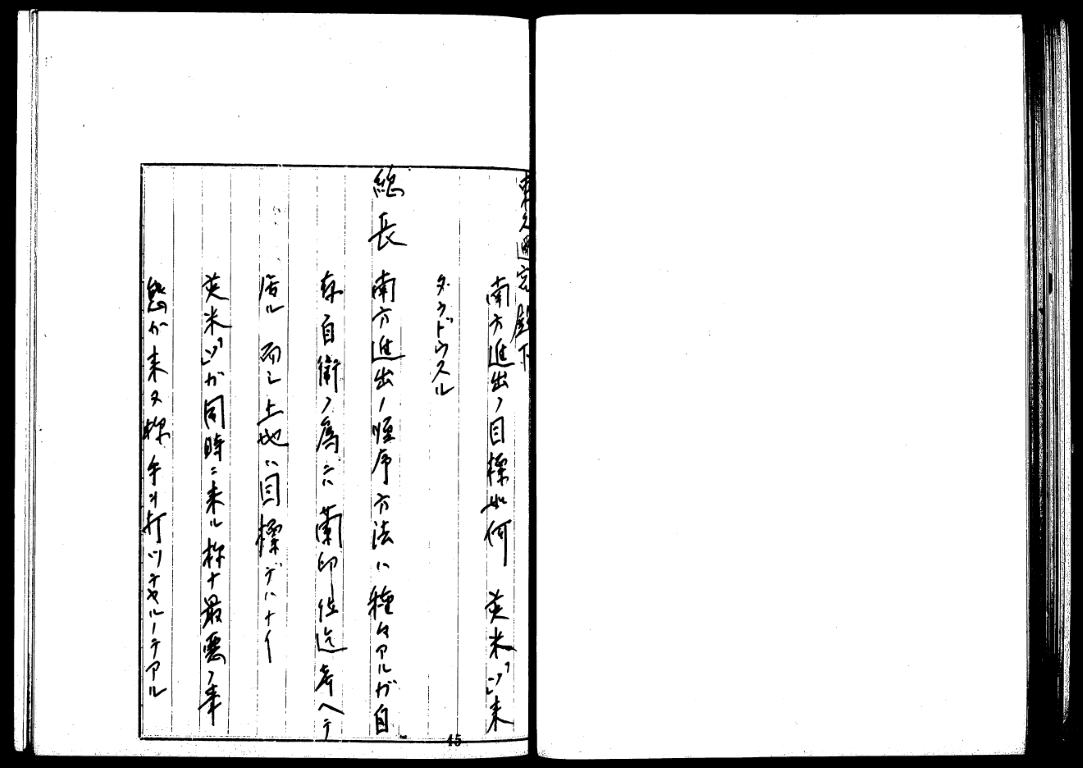 東久邇宮殿下
南方進出ノ目標如何 英米ソ来
タラドウスル
総長 南方進出ノ順序方法ハ種々アルガ自
存自衛ノ為ニハ蘭印位迄考ヘテ
居ル 而シ土地ハ目標デハナイ
英米ソガ同時ニ来ル様ナ最悪ノ事
態ガ来タ様 手ヲ打ツテヤルノデアル
45